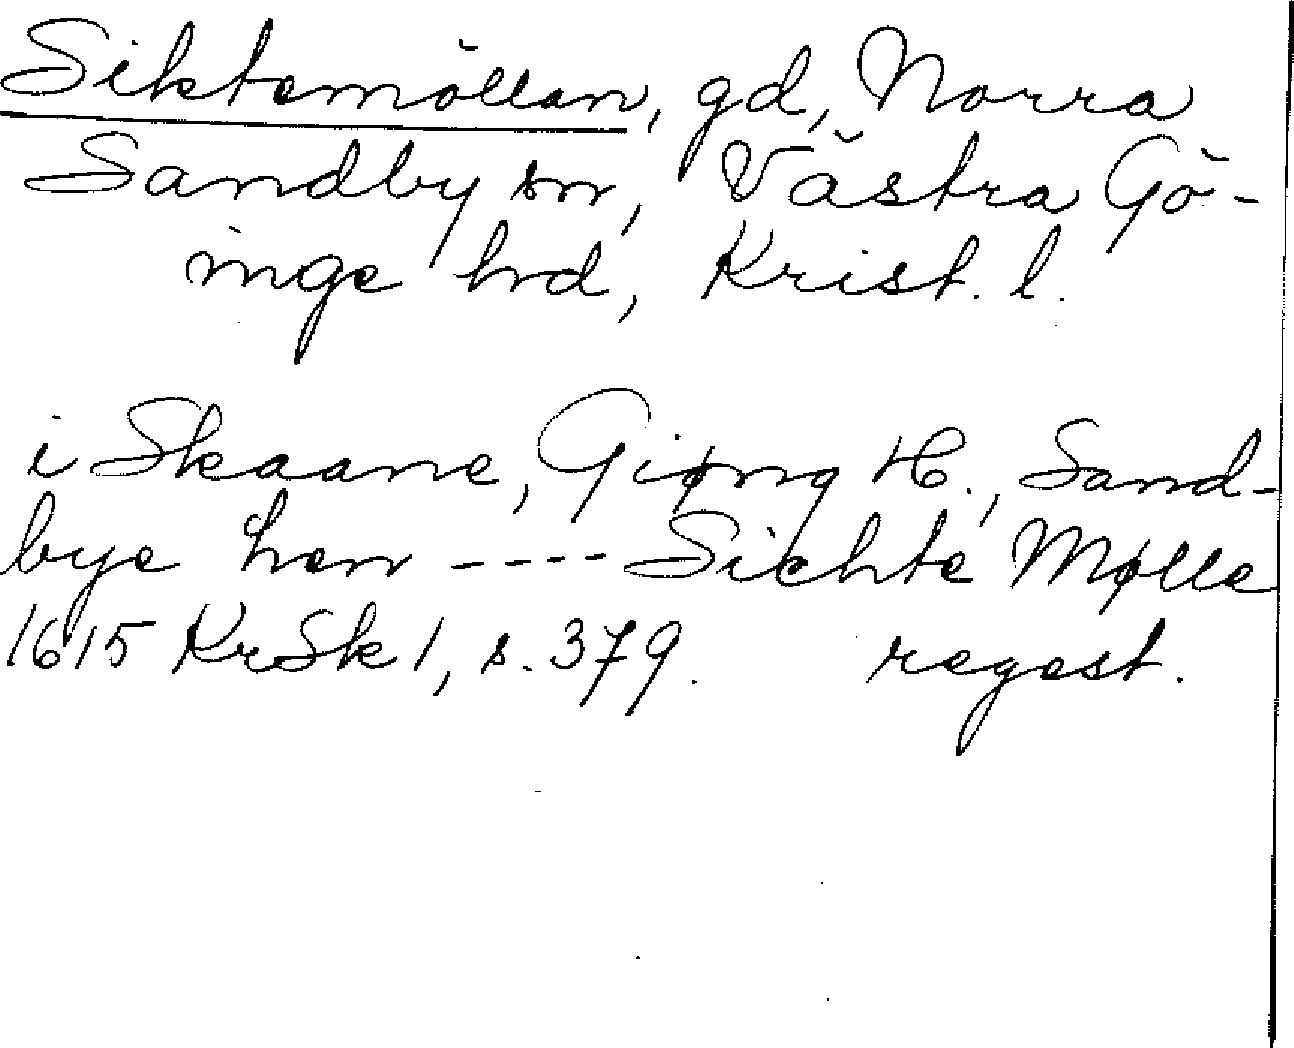 Siktemöllan, gd, Norra
Sandby sn, Västra Gö-
inge hd, Krist. l.
i Skaane, Giøng H., Sand-
bye hen ---- Sichte Mølle
1615 KrSk 1, s. 379. regest.